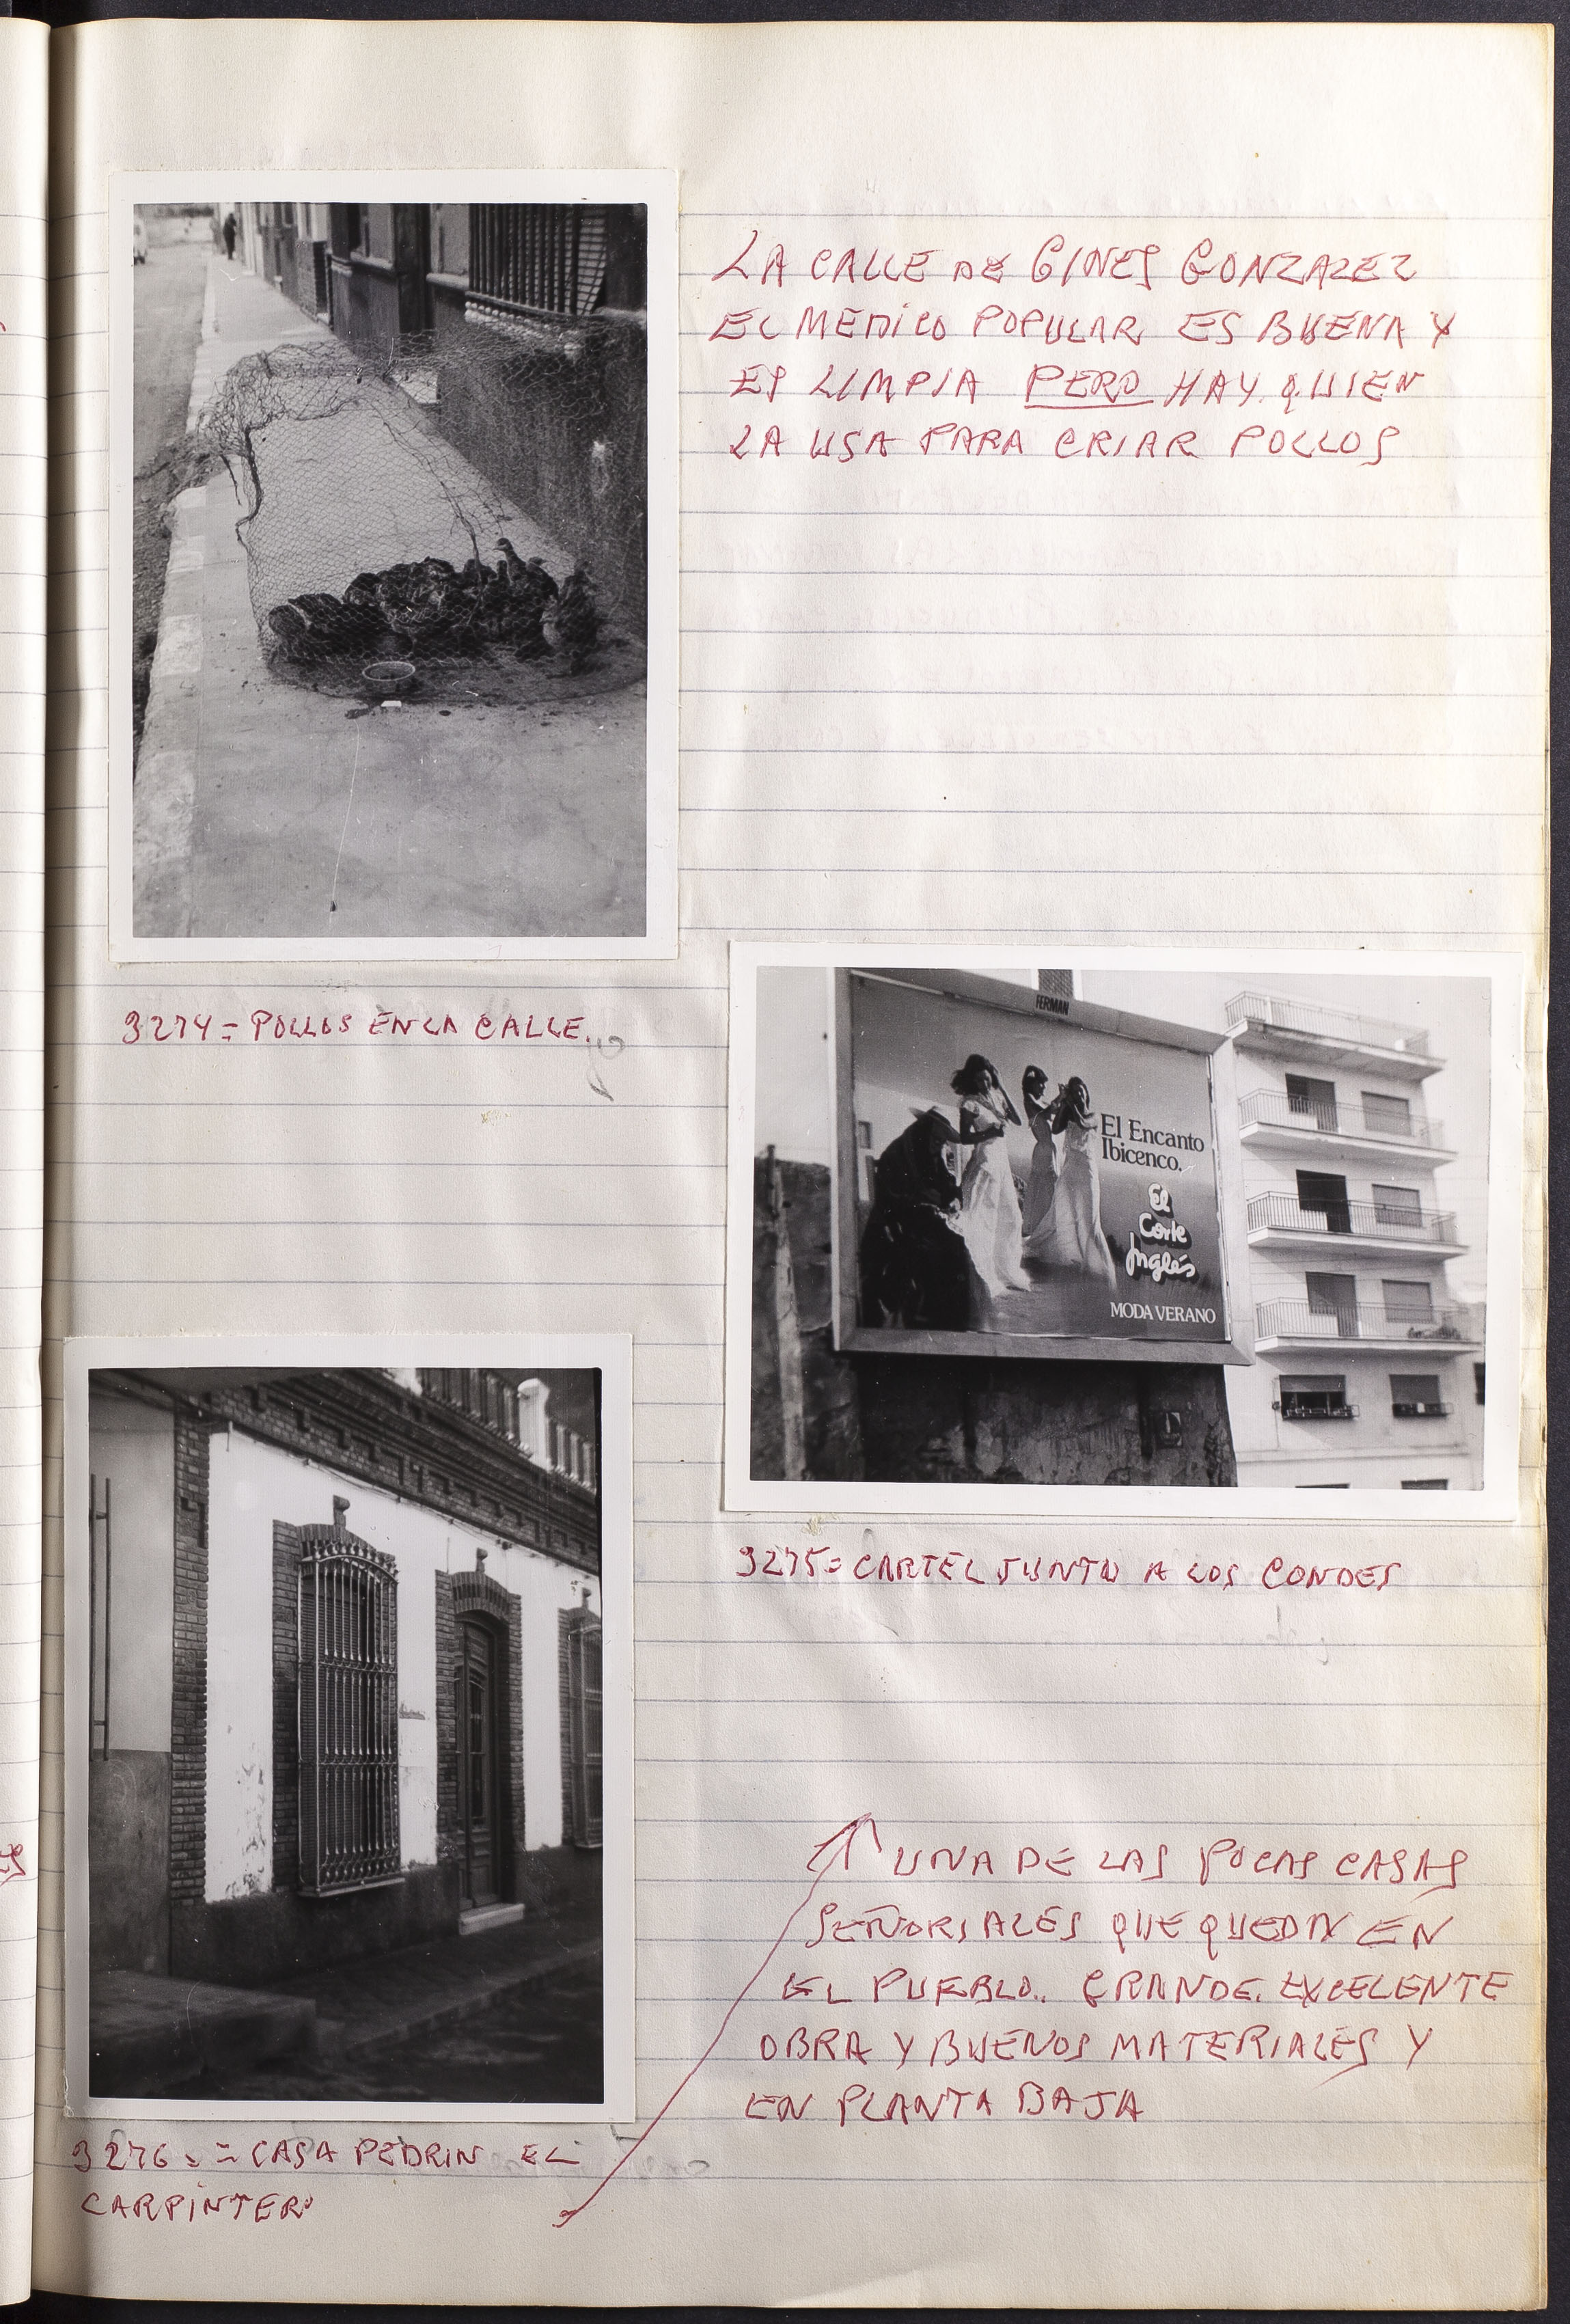 LA CALLE DE GINES GONZALEZ
EL MEDICO POPULAR ES BUENA Y
ES LIMPIA PERO HAY QUIEN
LA USA PARA CRIAR POLLOS
3274= POLLOS EN LA CALLE.
FERMAN
El Encanto
Ibicenco.
El
Corte
Inglés
MODA VERANO
3275= CARTEL JUNTO A LOS CONDES
UNA DE LAS POCAS CASAS
SEÑORIALES QUE QUEDAN EN
EL PUEBLO.. GRANDE. EXCELENTE
OBRA Y BUENOS MATERIALES Y
EN PLANTA BAJA
3276.= CASA PEDRIN EL
CARPINTERO